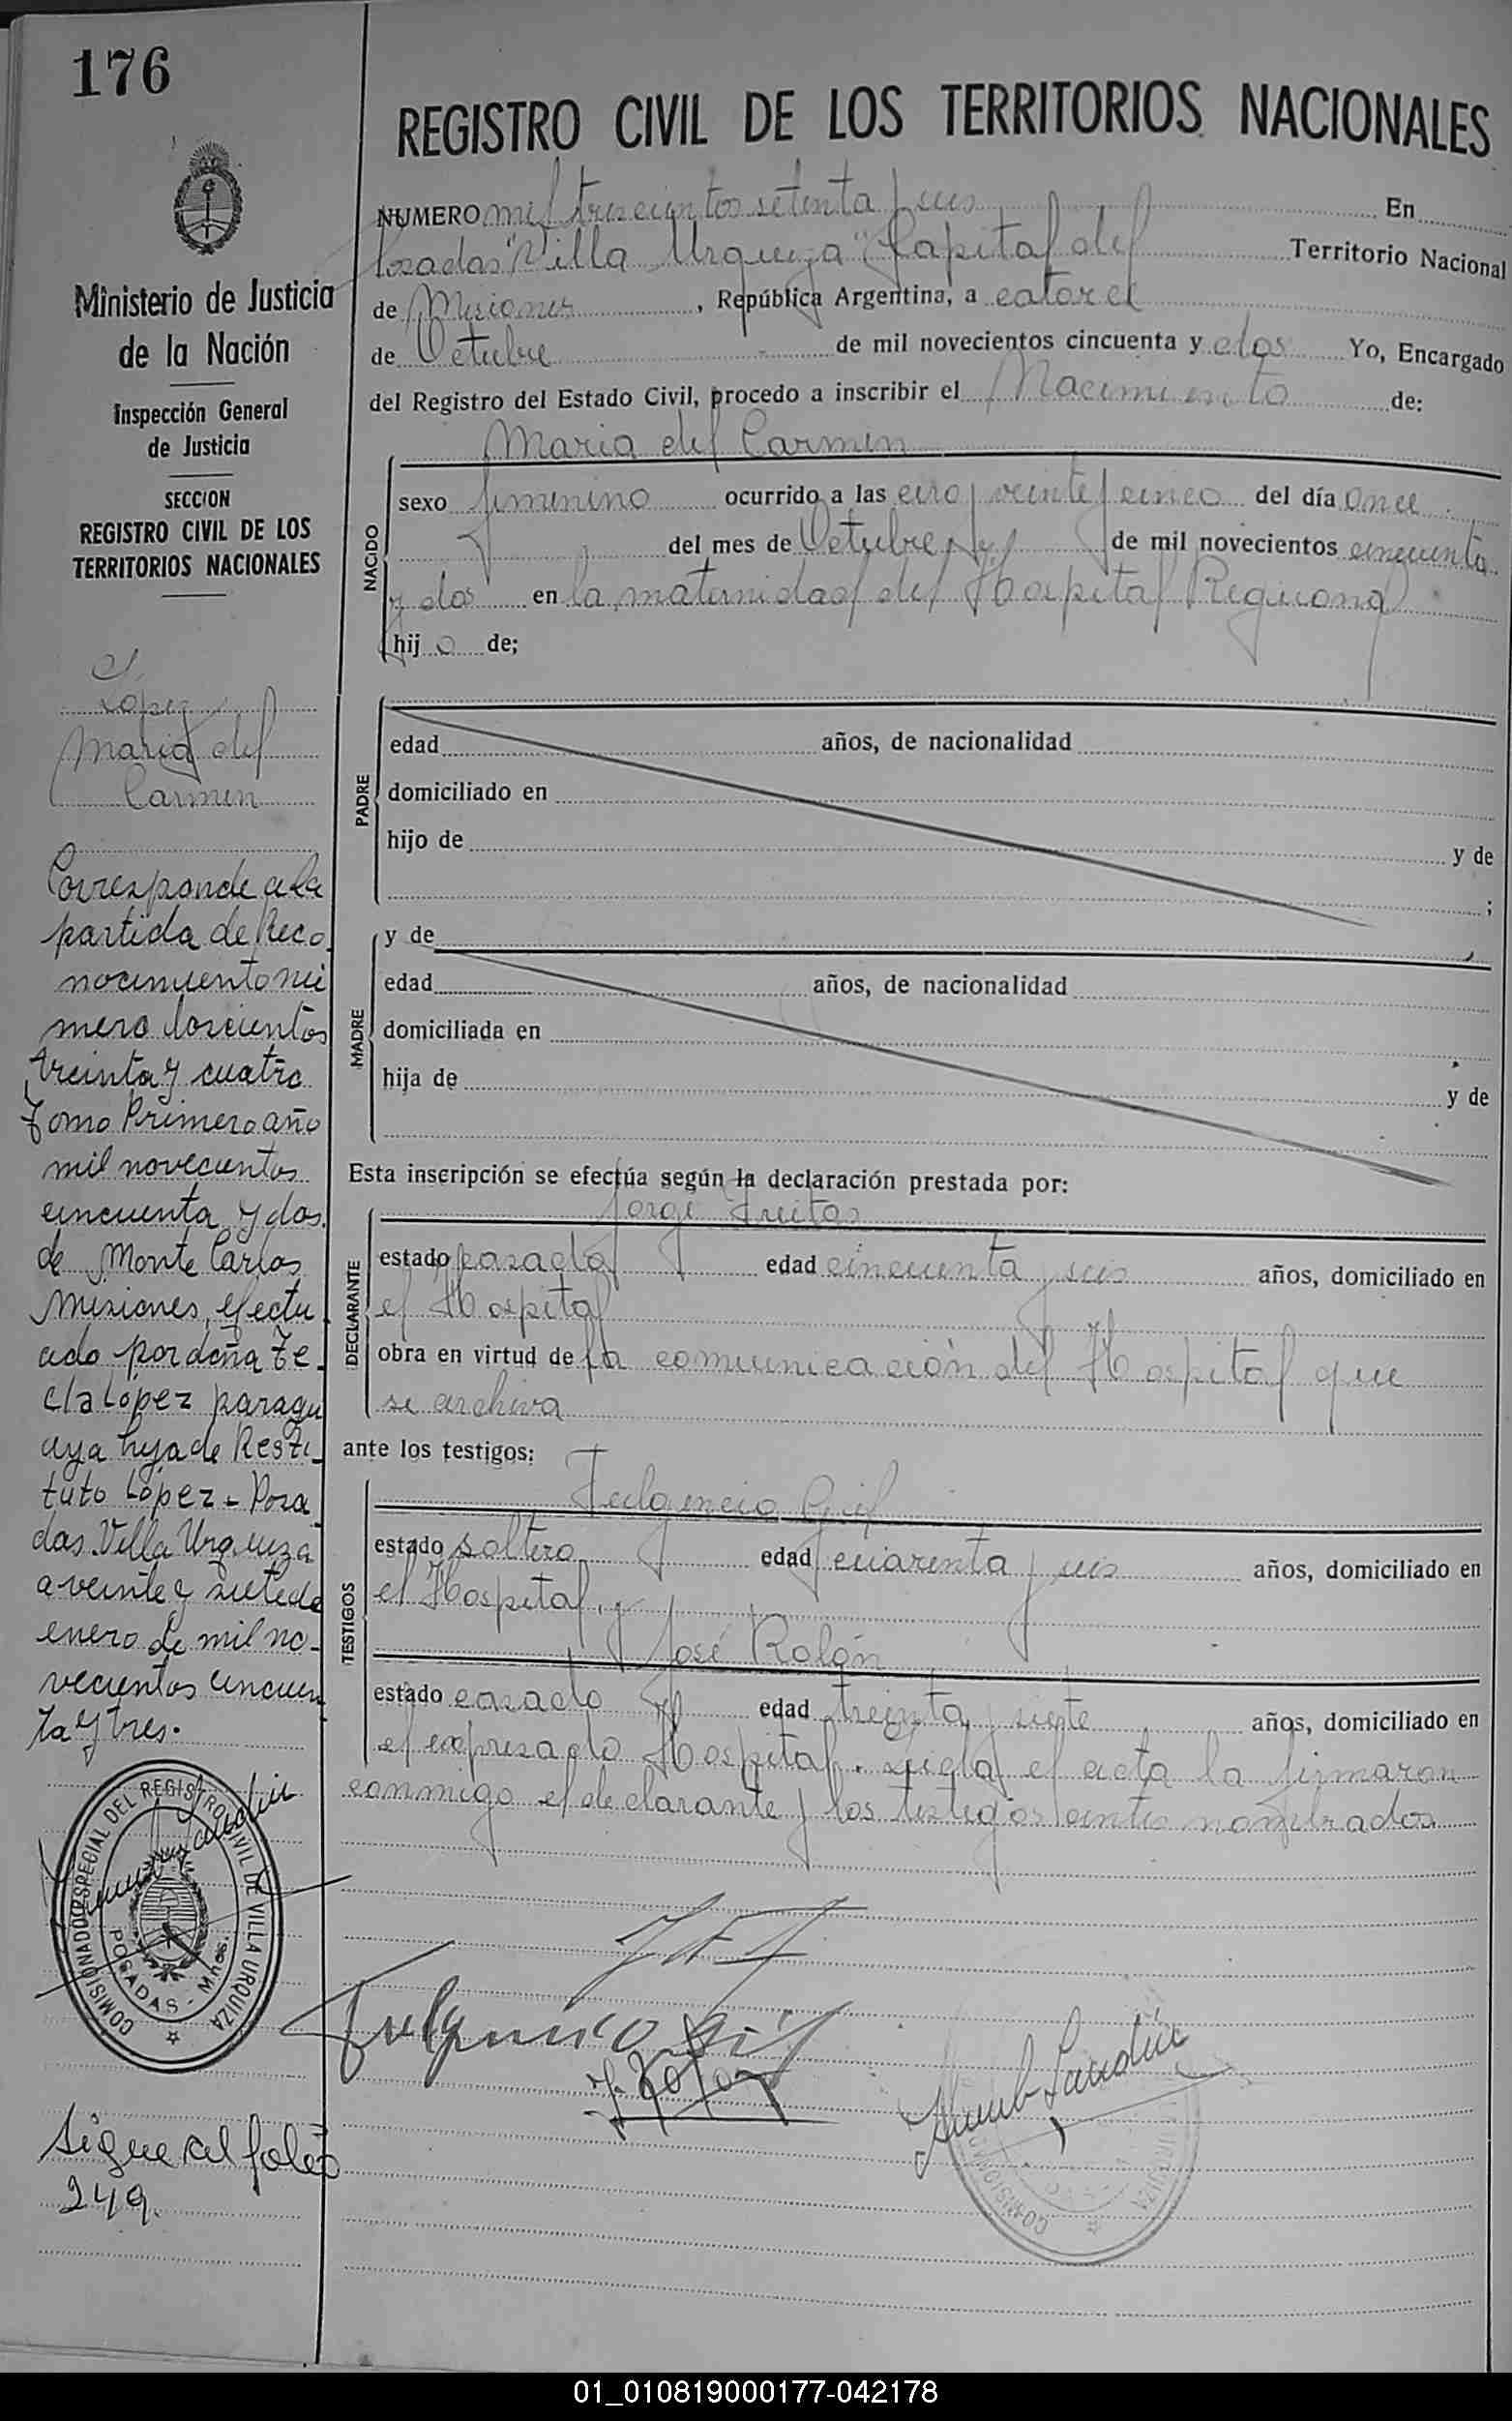 176
REGISTRO CIVIL DE LOS TERRITORIOS NACIONALES
NUMERO mil trescientos setenta y seis En
Posadas "Villa Urquiza" Capital del Territorio Nacional
de Misiones, República Argentina, a catorce
de Octubre de mil novecientos cincuenta y dos Yo, Encargado
del Registro del Estado Civil, procedo a inscribir el Nacimiento de:
Maria del Carmen
NACIDO
sexo femenino ocurrido a las cero y veinte y cinco del día once
del mes de Octubre de mil novecientos cincuenta
y dos en la maternidad del Hospital Regional
hij a de;
PADRE
edad años, de nacionalidad
domiciliado en
hijo de y de
;
MADRE
y de ,
edad años, de nacionalidad
domiciliada en
hija de y de
Esta inscripción se efectúa según la declaración prestada por:
Jorge Freitas
DECLARANTE
estado casado edad cincuenta y seis años, domiciliado en
el Hospital
obra en virtud de la comunicación del Hospital que
se archiva
ante los testigos:
Fulgencio Gil
TESTIGOS
estado soltero edad cuarenta y seis años, domiciliado en
el Hospital, y
José Rolón
estado casado edad treinta y siete años, domiciliado en
el expresado Hospital. Leída el acta la firmaron
conmigo el declarante y los testigos antes nombrados
Fulgencio Gil
J. Rolon
Ministerio de Justicia
de la Nación
Inspección General
de Justicia
SECCION
REGISTRO CIVIL DE LOS
TERRITORIOS NACIONALES
López
Maria del
Carmen
Corresponde a la
partida de Reco-
nocimiento nú
mero doscientos
treinta y cuatro
Tomo Primero año
mil novecientos
cincuenta y dos
de Monte Carlos
Misiones, efectu
ado por doña Te-
cla López paragu
aya hija de Resti-
tuto López - Posa
das Villa Urquiza
a veinte y siete de
enero de mil no-
vecientos cincuen
ta y tres.
COMISIONADO ESPECIAL DEL REGISTRO CIVIL DE VILLA URQUIZA
POSADAS - Mnes.
Sigue al folio
249.
01_010819000177-042178